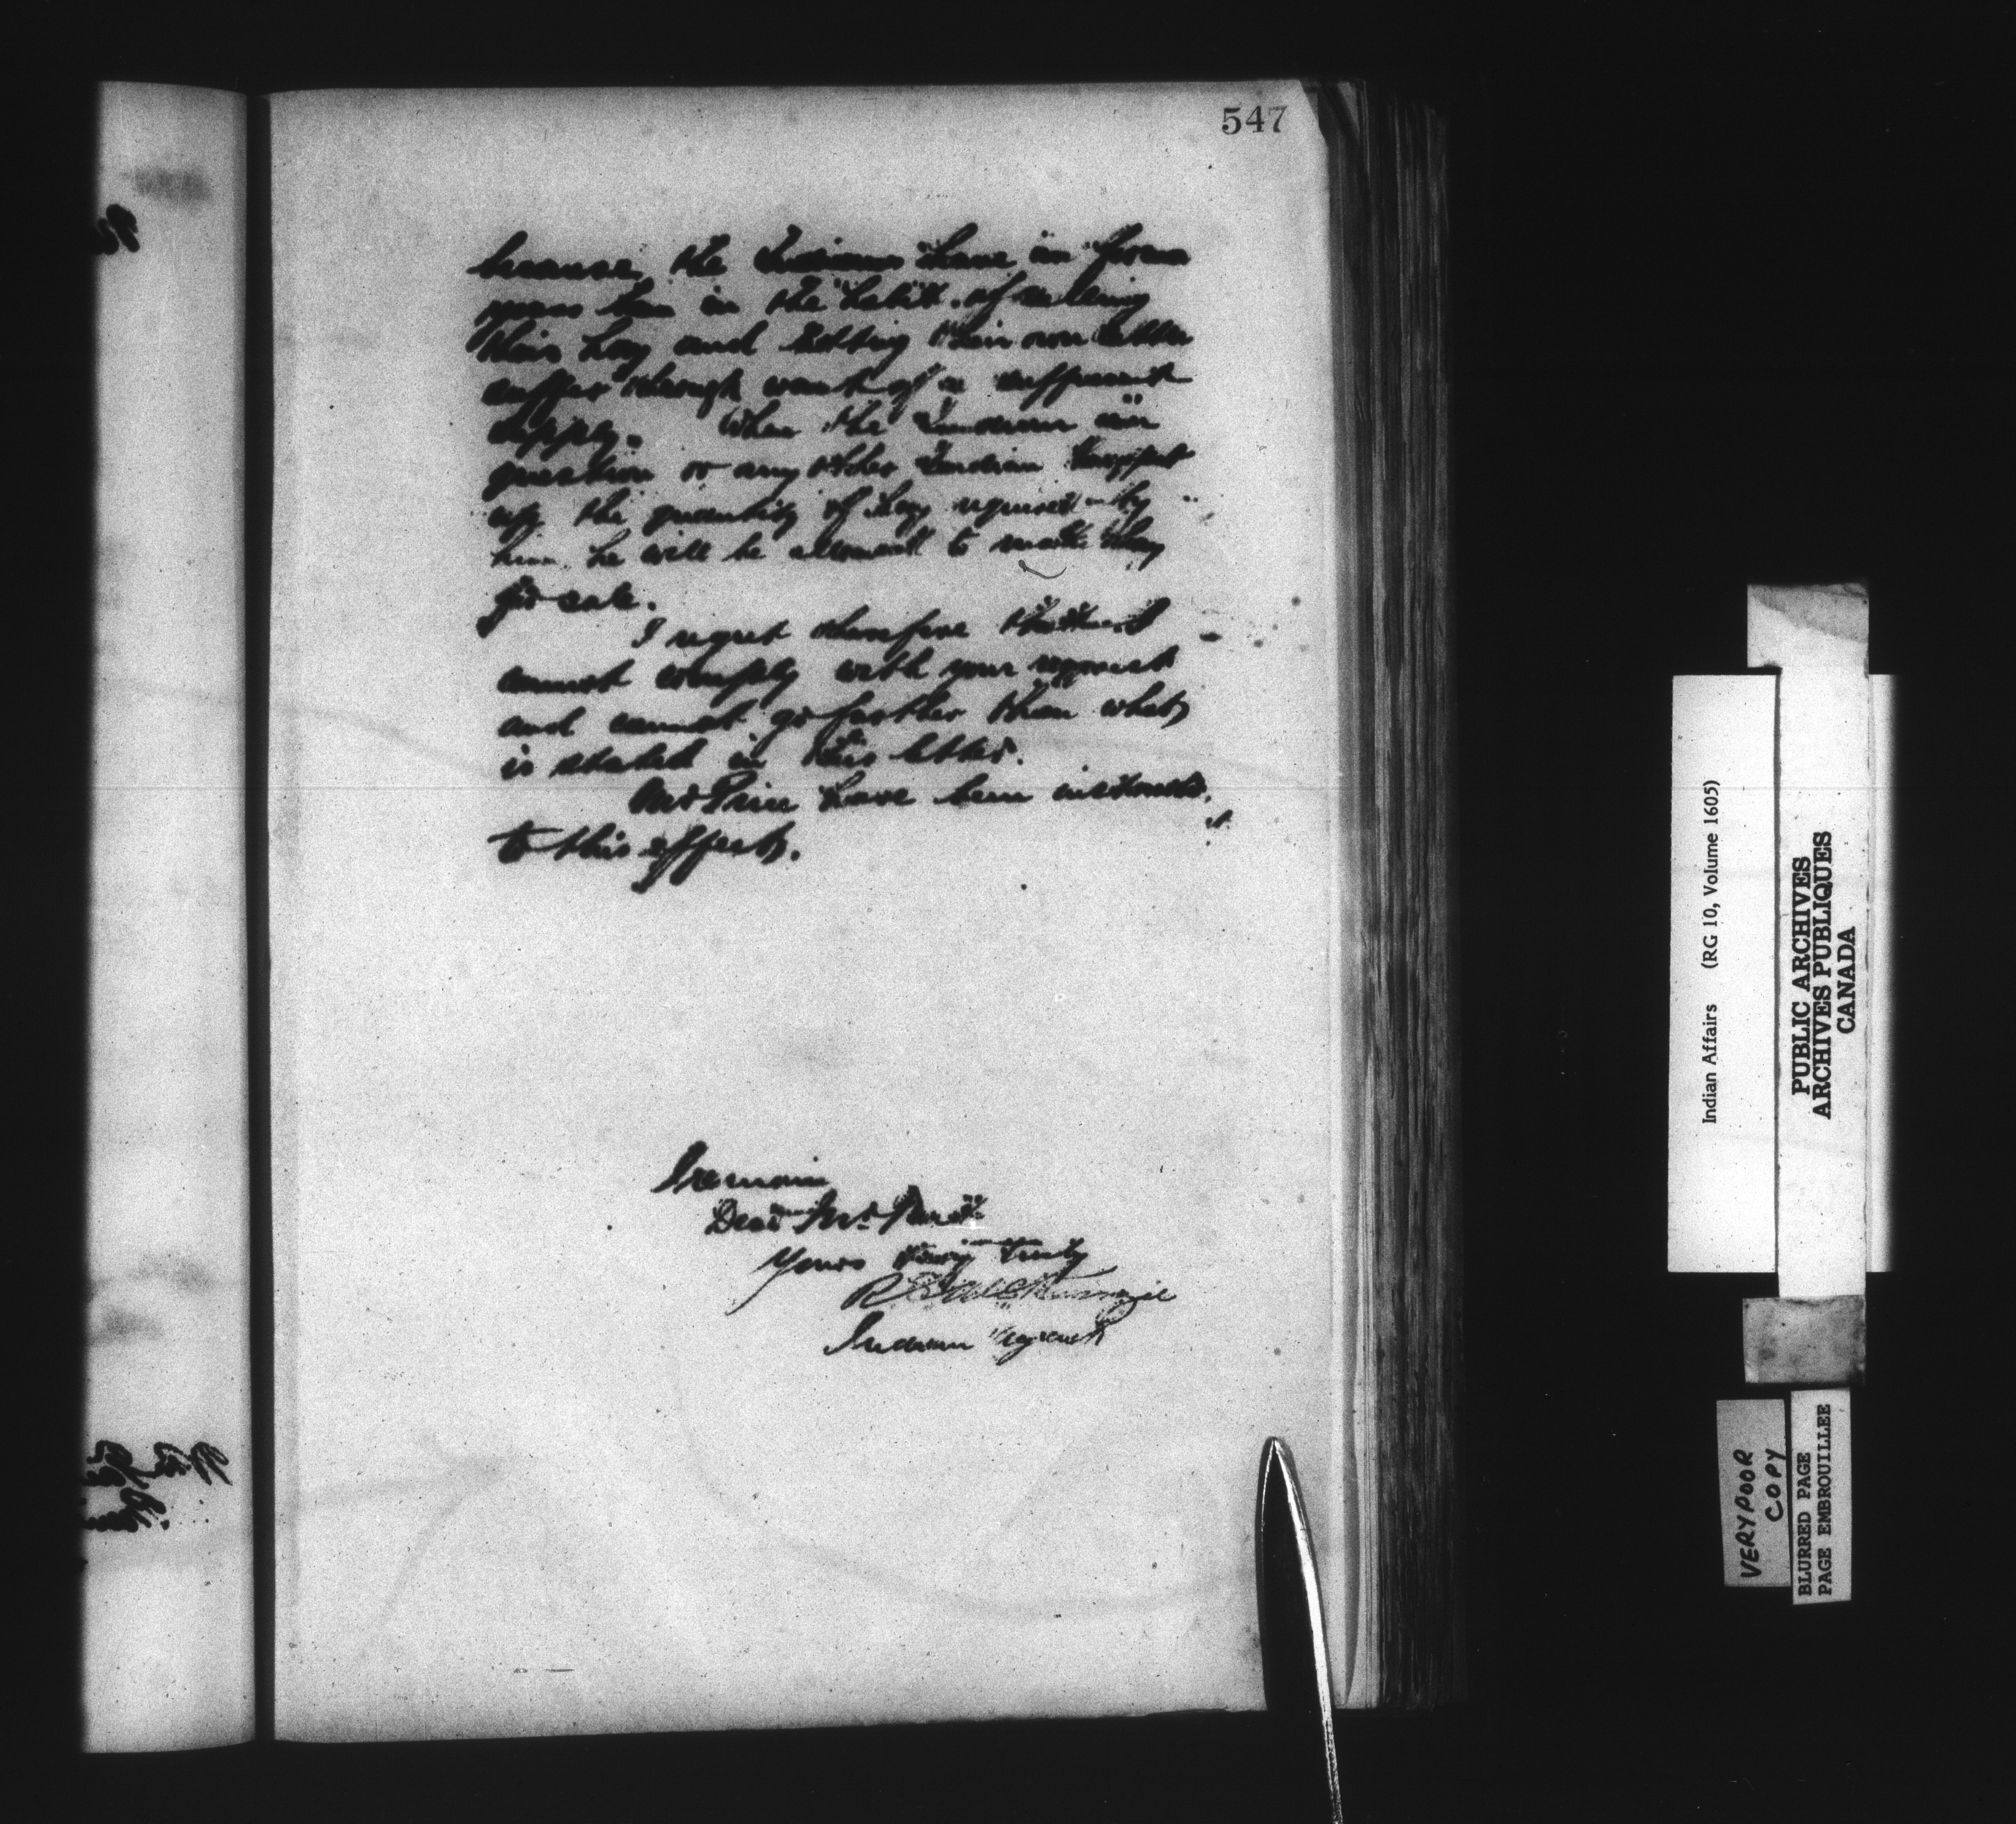 547
because the Indians have in former
years been in the habit of selling
their hay and letting their own cattle
suffer through want of a sufficient
supply. When the Indian in
question or any other Indian has put
up the quantity of hay required by
him he will be allowed to make hay
for sale.
I regret therefore that I
cannot comply with your request
and cannot go further than what
is stated in this letter.
Mr Price have been instructed
to this effect.
I remain
Dear Mr
Yours very truly
McKenzie
Indian Agent
Indian Affairs (RG 10, Volume 1605)
PUBLIC ARCHIVES
ARCHIVES PUBLIQUES
CANADA
VERY POOR
COPY
BLURRED PAGE
PAGE EMBROUILLEE